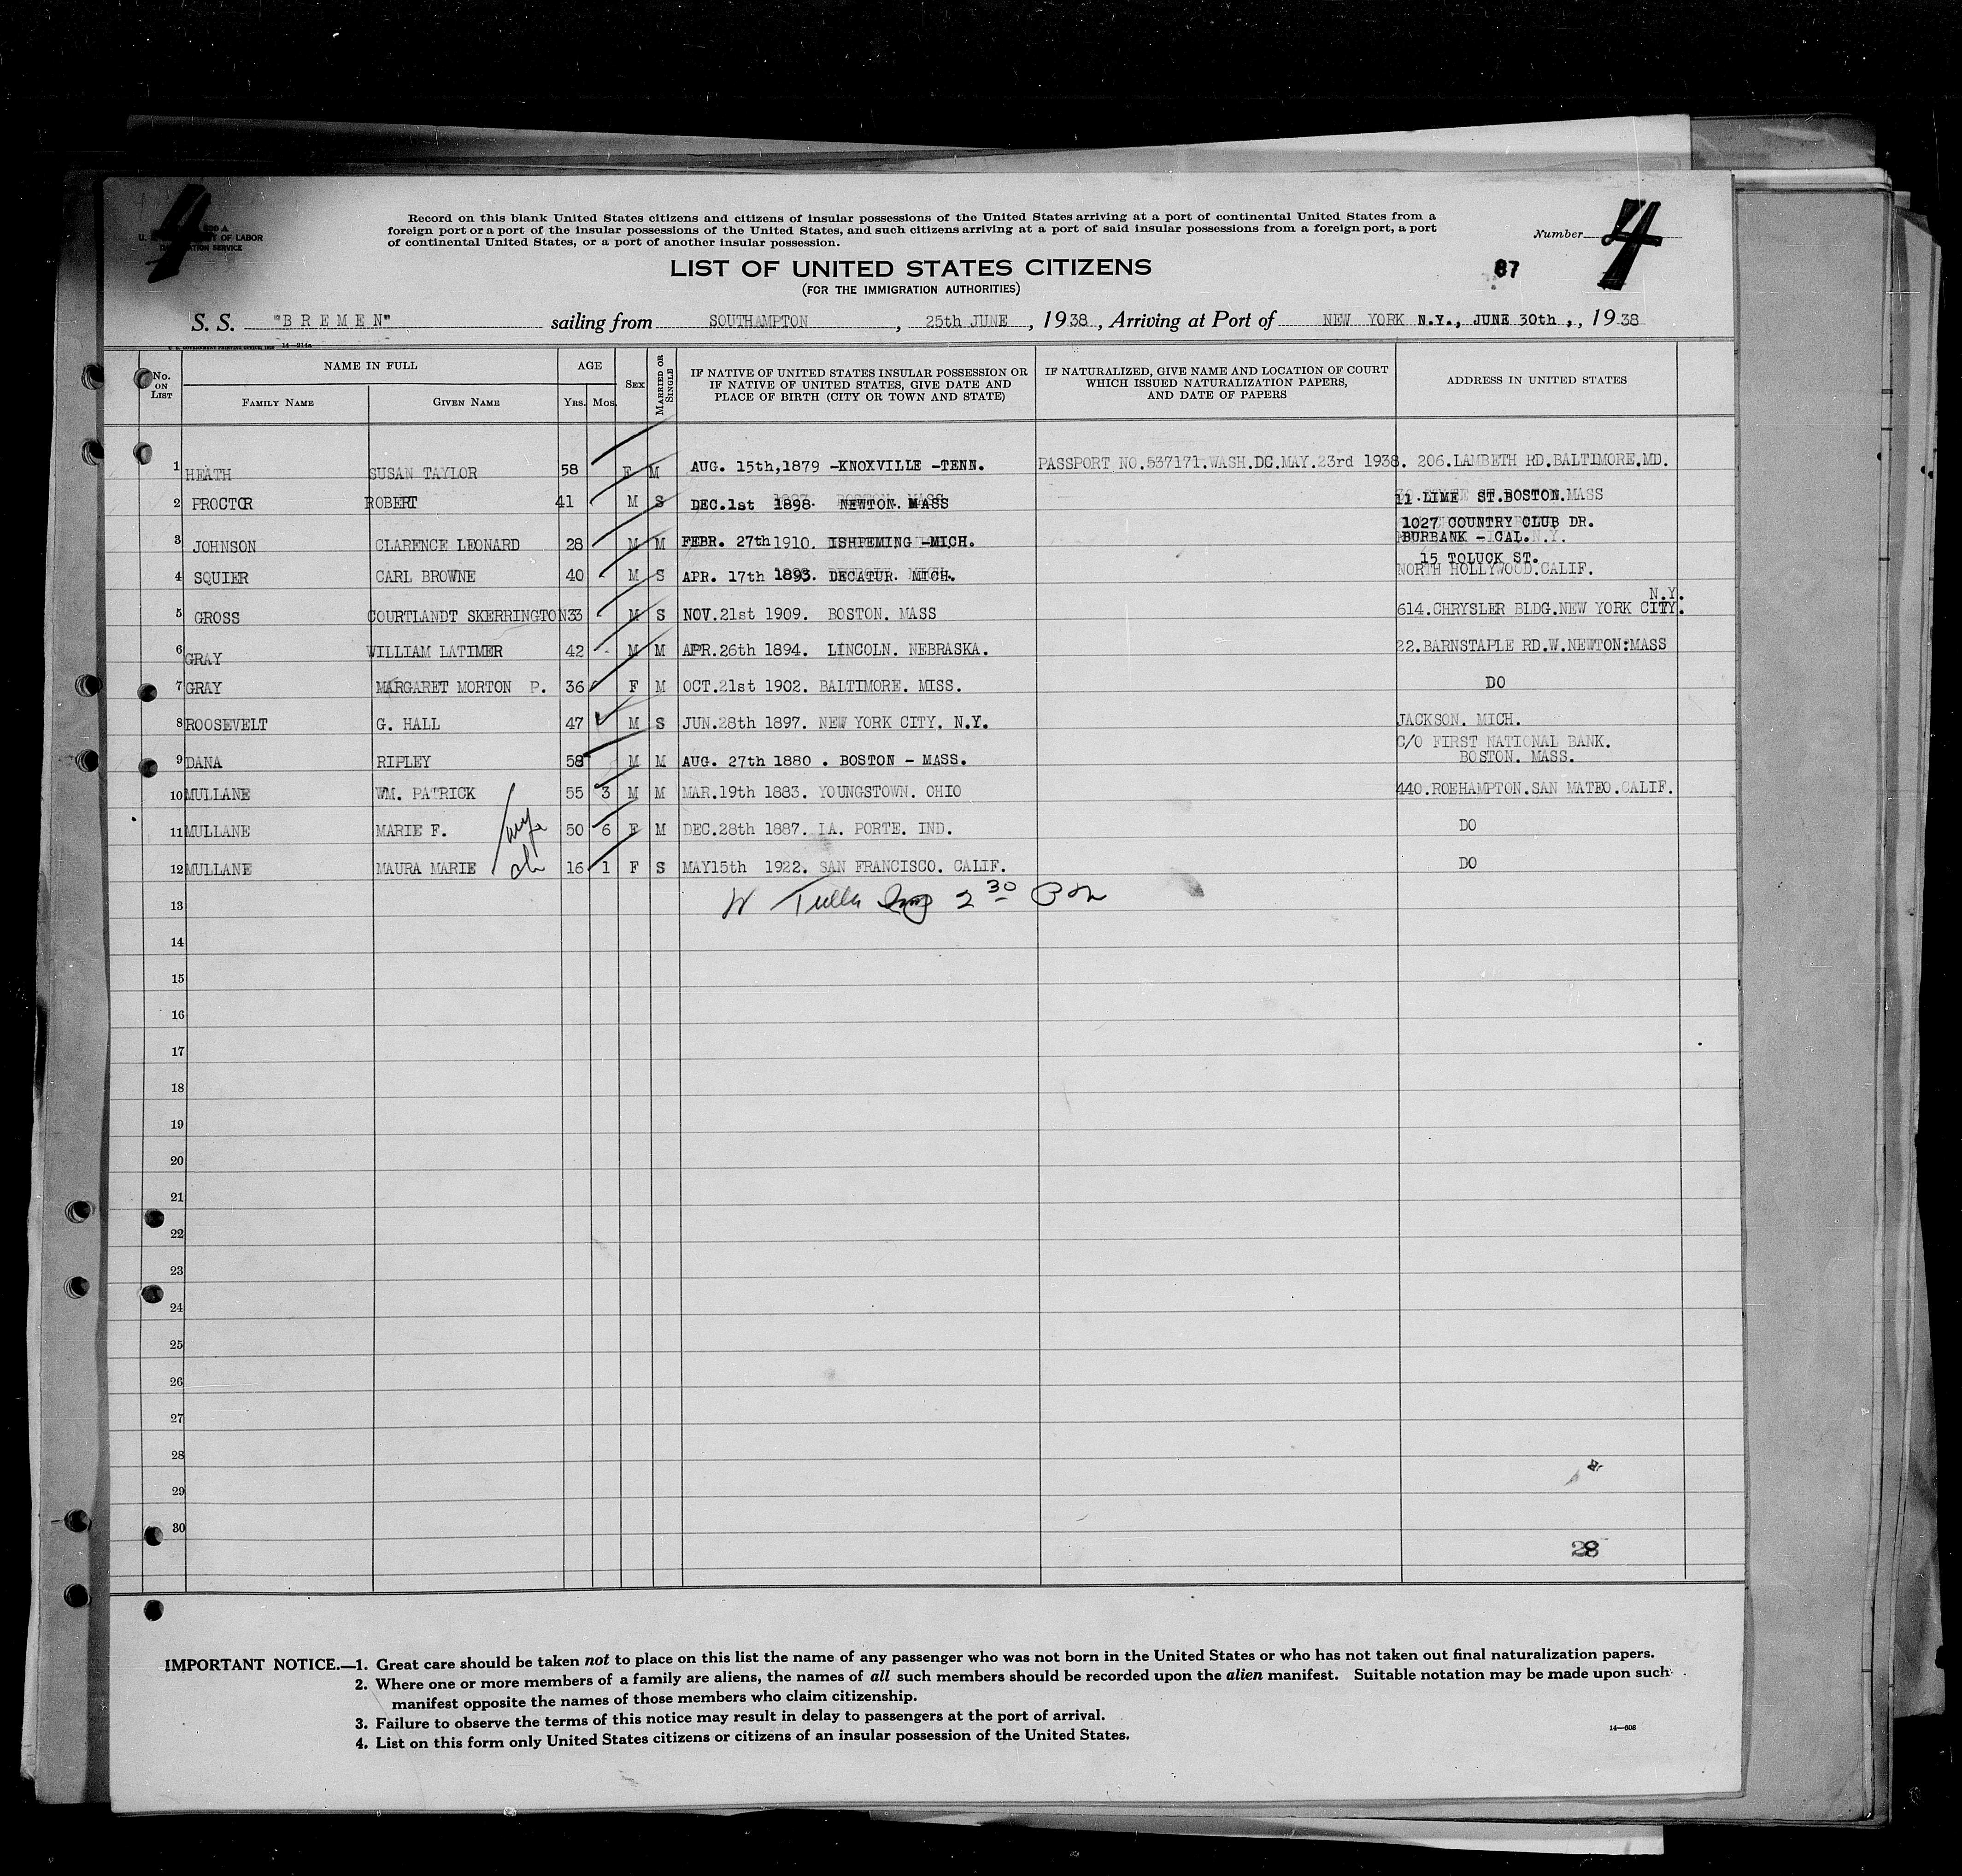 4
4
Record on this blank United States citizens and citizens of insular possessions of the United States arriving at a port of continental United States from a
foreign port or a port of the insular possessions of the United States, and such citizens arriving at a port of said insular possessions from a foreign port, a port
of continental United States, or a port of another insular possession.
Number
OF LABOR
LIST OF UNITED STATES CITIZENS
87
(FOR THE IMMIGRATION AUTHORITIES)
S. S. "BREMEN" sailing from SOUTHAMPTON, 25th JUNE, 1938, Arriving at Port of NEW YORK N.Y., JUNE 30th, , 1938
14—214a
No. ON LIST
NAME IN FULL
FAMILY NAME GIVEN NAME
AGE
YRS. MOS.
SEX
MARRIED OR SINGLE
IF NATIVE OF UNITED STATES INSULAR POSSESSION OR
IF NATIVE OF UNITED STATES, GIVE DATE AND
PLACE OF BIRTH (CITY OR TOWN AND STATE)
IF NATURALIZED, GIVE NAME AND LOCATION OF COURT
WHICH ISSUED NATURALIZATION PAPERS,
AND DATE OF PAPERS
ADDRESS IN UNITED STATES
1 HEATH SUSAN TAYLOR 58 F M AUG. 15th,1879 -KNOXVILLE -TENN. PASSPORT NO.537171.WASH.DC.MAY.23rd 1938. 206.LAMBETH RD.BALTIMORE.MD.
2 PROCTOR ROBERT 41 M S DEC.1st 1898. NEWTON. MASS 11.LIME ST.BOSTON.MASS
3 JOHNSON CLARENCE LEONARD 28 M M FEBR. 27th 1910. ISHPEMING -MICH. 1027 COUNTRY CLUB DR.
BURBANK - CAL.
4 SQUIER CARL BROWNE 40 M S APR. 17th 1893. DECATUR. MICH. 15 TOLUCK ST.
NORTH HOLLYWOOD.CALIF.
5 GROSS COURTLANDT SKERRINGTON 33 M S NOV.21st 1909. BOSTON. MASS 614.CHRYSLER BLDG.NEW YORK CITY. N.Y.
6 GRAY WILLIAM LATIMER 42 - M M APR.26th 1894. LINCOLN. NEBRASKA. 22.BARNSTAPLE RD.W.NEWTON:MASS
7 GRAY MARGARET MORTON P. 36 F M OCT.21st 1902. BALTIMORE. MISS. DO
8 ROOSEVELT G. HALL 47 M S JUN.28th 1897. NEW YORK CITY. N.Y. JACKSON. MICH.
9 DANA RIPLEY 58 M M AUG. 27th 1880 . BOSTON - MASS. C/O FIRST NATIONAL BANK.
BOSTON. MASS.
10 MULLANE WM. PATRICK 55 3 M M MAR.19th 1883. YOUNGSTOWN. OHIO 440.ROEHAMPTON.SAN MATEO.CALIF.
11 MULLANE MARIE F. wife 50 6 F M DEC.28th 1887. LA. PORTE. IND. DO
12 MULLANE MAURA MARIE ch 16 1 F S MAY15th 1922. SAN FRANCISCO. CALIF. DO
13 2 30 Pm
14
15
16
17
18
19
20
21
22
23
24
25
26
27
28
29
30
28
IMPORTANT NOTICE.—1. Great care should be taken not to place on this list the name of any passenger who was not born in the United States or who has not taken out final naturalization papers.
2. Where one or more members of a family are aliens, the names of all such members should be recorded upon the alien manifest. Suitable notation may be made upon such
manifest opposite the names of those members who claim citizenship.
3. Failure to observe the terms of this notice may result in delay to passengers at the port of arrival.
4. List on this form only United States citizens or citizens of an insular possession of the United States.
14—608